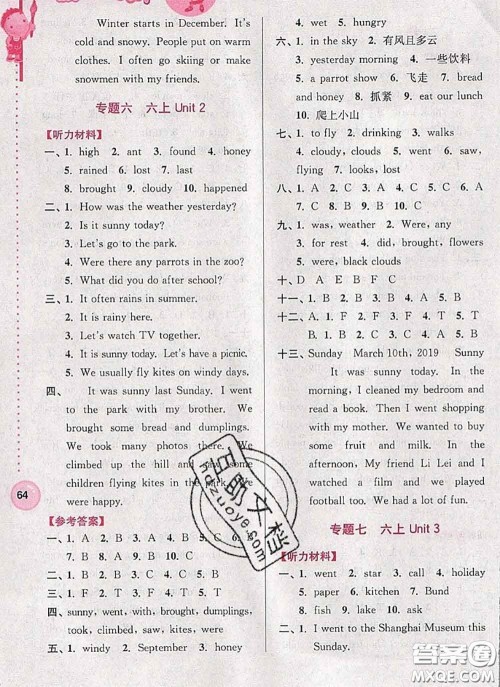 Winter starts in December. It's
cold and snowy. People put on warm
clothes. I often go skiing or make
snowmen with my friends.
专题六 六上 Unit 2
【听力材料】
一、1. high 2. ant 3. found 4. honey
5. rained 6. lost 7. last
8. brought 9. cloudy 10. happened
二、1. How was the weather yesterday?
2. Is it sunny today?
3. Let's go to the park.
4. Were there any parrots in the zoo?
5. What did you do after school?
三、1. It often rains in summer.
2. It is rainy here.
3. Let's watch TV together.
4. It is sunny today. Let's have a picnic.
5. We usually fly kites on windy days.
四、 It was sunny last Sunday. I went
to the park with my brother. We
brought some bread and dumplings.
We took many photos there. We
climbed up the hill and saw some
children flying kites in the park. We
were happy.
【参考答案】
一、1. A 2. B 3. A 4. B 5. A 6. B
7. B 8. A 9. A 10. B
二、1. B 2. A 3. C 4. C 5. A
三、1. A 2. B 3. B 4. A
四、sunny, went, brought, dumplings,
took, climbed, saw, kites, were
五、1. windy 2. September 3. honey
64
4. wet 5. hungry
六、1. in the sky 2. 有风且多云
3. yesterday morning 4. 一些饮料
5. a parrot show 6. 飞走 7. bread
and honey 8. 抓紧 9. every day
10. 爬上小山
七、1. to fly 2. drinking 3. walks
4. cloudy, clouds 5. went 6. saw,
flying 7. looks, lost
八、1. A 2. C 3. C 4. B 5. C 6. C
7. A 8. A 9. B 10. C
九、1. was, weather 2. Were, any
3. for rest 4. did, brought, flowers
5. were, black clouds
十、D A E B F C
十一、1. B 2. C 3. B 4. A 5. B
十二、1. F 2. T 3. F 4. T 5. T
十三、Sunday March 10th, 2019 Sunny
It was sunny today. In the
morning, I cleaned my bedroom and
read a book. Then I went shopping
with my mother. We wanted to buy
some fruit and milk. In the
afternoon, My friend Li Lei and I
went to the park and we played
football too. We had a lot of fun.
专题七 六上 Unit 3
【听力材料】
一、1. went 2. star 3. call 4. holiday
5. paper 6. kitchen 7. Bund
8. fish 9. lake 10. ask
二、1. I went to the Shanghai Museum this
Sunday.
互助文档
hdzuoye.com
答案圈
MXQE.COM